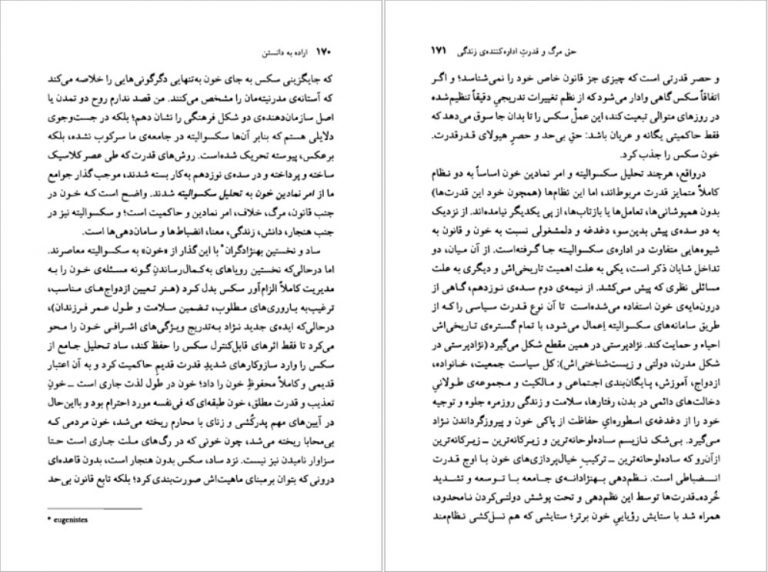 ۱۷۰ اراده به دانستن
که جایگزینی سکس به جای خون به‌تنهایی دگرگونی‌هایی را خلاصه می‌کند
که آستانه‌ی مدرنیته‌مان را مشخص می‌کنند. من قصد ندارم روح دو تمدن یا
اصل سازمان‌دهنده‌ی دو شکل فرهنگی را نشان دهم؛ بلکه در جست‌وجوی
دلایلی هستم که بنابر آن‌ها سکسوالیته در جامعه‌ی ما سرکوب نشده، بلکه
برعکس، پیوسته تحریک شده‌است. روش‌های قدرت که طی عصر کلاسیک
ساخته و پرداخته و در سده‌ی نوزدهم به‌کار بسته شدند، موجب‌گذار جوامع
ما از امر نمادین خون به تحلیل سکسوالیته شدند. واضح است که خون در
جنب قانون، مرگ، خلاف، امر نمادین و حاکمیت است؛ و سکسوالیته نیز در
جنب هنجار، دانش، زندگی، معنا، انضباط‌ها و سامان‌دهی‌ها است.
ساد و نخستین بهنژادگران* با این گذار از «خون» به سکسوالیته معاصرند.
اما درحالی‌که نخستین رویاهای به‌کمال‌رساندن گونه مسئله‌ی خون را به
مدیریت کاملاً الزام‌آور سکس بدل کرد (هنر تعیین ازدواج‌های مناسب،
ترغیب به باروری‌های مطلوب، تضمین سلامت و طول عمر فرزندان)،
درحالی‌که ایده‌ی جدید نژاد به‌تدریج ویژگی‌های اشرافی خون را محو
می‌کرد تا فقط اثرهای قابل‌کنترل سکس را حفظ کند، ساد تحلیل جامع از
سکس را وارد سازوکارهای شدیدِ قدرت قدیم حاکمیت کرد و به آن اعتبار
قدیمی و کاملاً محفوظ خون را داد؛ خون در طول لذت جاری است ــ خونِ
تعذیب و قدرت مطلق، خون طبقه‌ای که فی‌نفسه مورد احترام بود و بااین‌حال
در آیین‌های مهم پدرکُشی و زنای با محارم ریخته می‌شد، خون مردمی که
بی‌محابا ریخته می‌شد، چون خونی که در رگ‌های ملت جاری است حتا
سزاوار نامیدن نیز نیست. نزد ساد، سکس بدون هنجار است، بدون قاعده‌ای
درونی که بتوان برمبنای ماهیت‌اش صورت‌بندی کرد؛ بلکه تابع قانون بی‌حد
* eugenistes
حق مرگ و قدرتِ اداره‌کننده‌ی زندگی ۱۷۱
و حصر قدرتی است که چیزی جز قانون خاص خود را نمی‌شناسد؛ و اگر
اتفاقاً سکس گاهی وادار می‌شود که از نظم تغییرات تدریجیِ دقیقاً تنظیم‌شده
در روزهای متوالی تبعیت کند، این عملْ سکس را تا بدان جا سوق می‌دهد که
فقط حاکمیتی یگانه و عریان باشد: حق بی‌حد و حصرِ هیولای قدرقدرت.
خون سکس را جذب کرد.
درواقع، هرچند تحلیل سکسوالیته و امر نمادین خون اساساً به دو نظام
کاملاً متمایز قدرت مربوط‌اند، اما این نظام‌ها (همچون خود این قدرت‌ها)
بدون همپوشانی‌ها، تعامل‌ها یا بازتاب‌ها، از پی یکدیگر نیامده‌اند. از نزدیک
به دو سده‌ی پیش بدین‌سو، دغدغه و دلمشغولی نسبت به خون و قانون به
شیوه‌هایی متفاوت در اداره‌ی سکسوالیته جا گرفته‌است. از آن میان، دو
تداخل شایان ذکر است، یکی به علت اهمیت تاریخی‌اش و دیگری به علت
مسائلی نظری که پیش می‌کشد. از نیمه‌ی دوم سده‌ی نوزدهم، گاهی از
درون‌مایه‌ی خون استفاده می‌شده‌است تا آن نوع قدرت سیاسی را که از
طریق سامانه‌های سکسوالیته اِعمال می‌شود، با تمام گستره‌ی تاریخی‌اش
احیاء و حمایت کند. نژادپرستی در همین مقطع شکل می‌گیرد (نژادپرستی در
شکل مدرن، دولتی و زیست‌شناختی‌اش): کل سیاست جمعیت، خانواده،
ازدواج، آموزش، پایگان‌بندی اجتماعی و مالکیت و مجموعه‌ی طولانیِ
دخالت‌های دائمی در بدن، رفتارها، سلامت و زندگی روزمره جلوه و توجیه
خود را از دغدغه‌ی اسطوره‌ایِ حفاظت از پاکی خون و پیروزگرداندن نژاد
می‌گیرد. بی‌شک نازیسم ساده‌لوحانه‌ترین و زیرکانه‌ترین ــ زیرکانه‌ترین
ازآن‌رو که ساده‌لوحانه‌ترین ــ ترکیبِ خیال‌پردازی‌های خون با اوج قدرت
انضباطی است. نظم‌دهی بهنژادانه‌ی جامعه با توسعه و تشدید
خُرده‌قدرت‌ها توسط این نظم‌دهی و تحت پوشش دولتی‌کردن نامحدود،
همراه شد با ستایش رؤیاییِ خون برتر؛ ستایشی که هم نسل‌کشی نظام‌مند